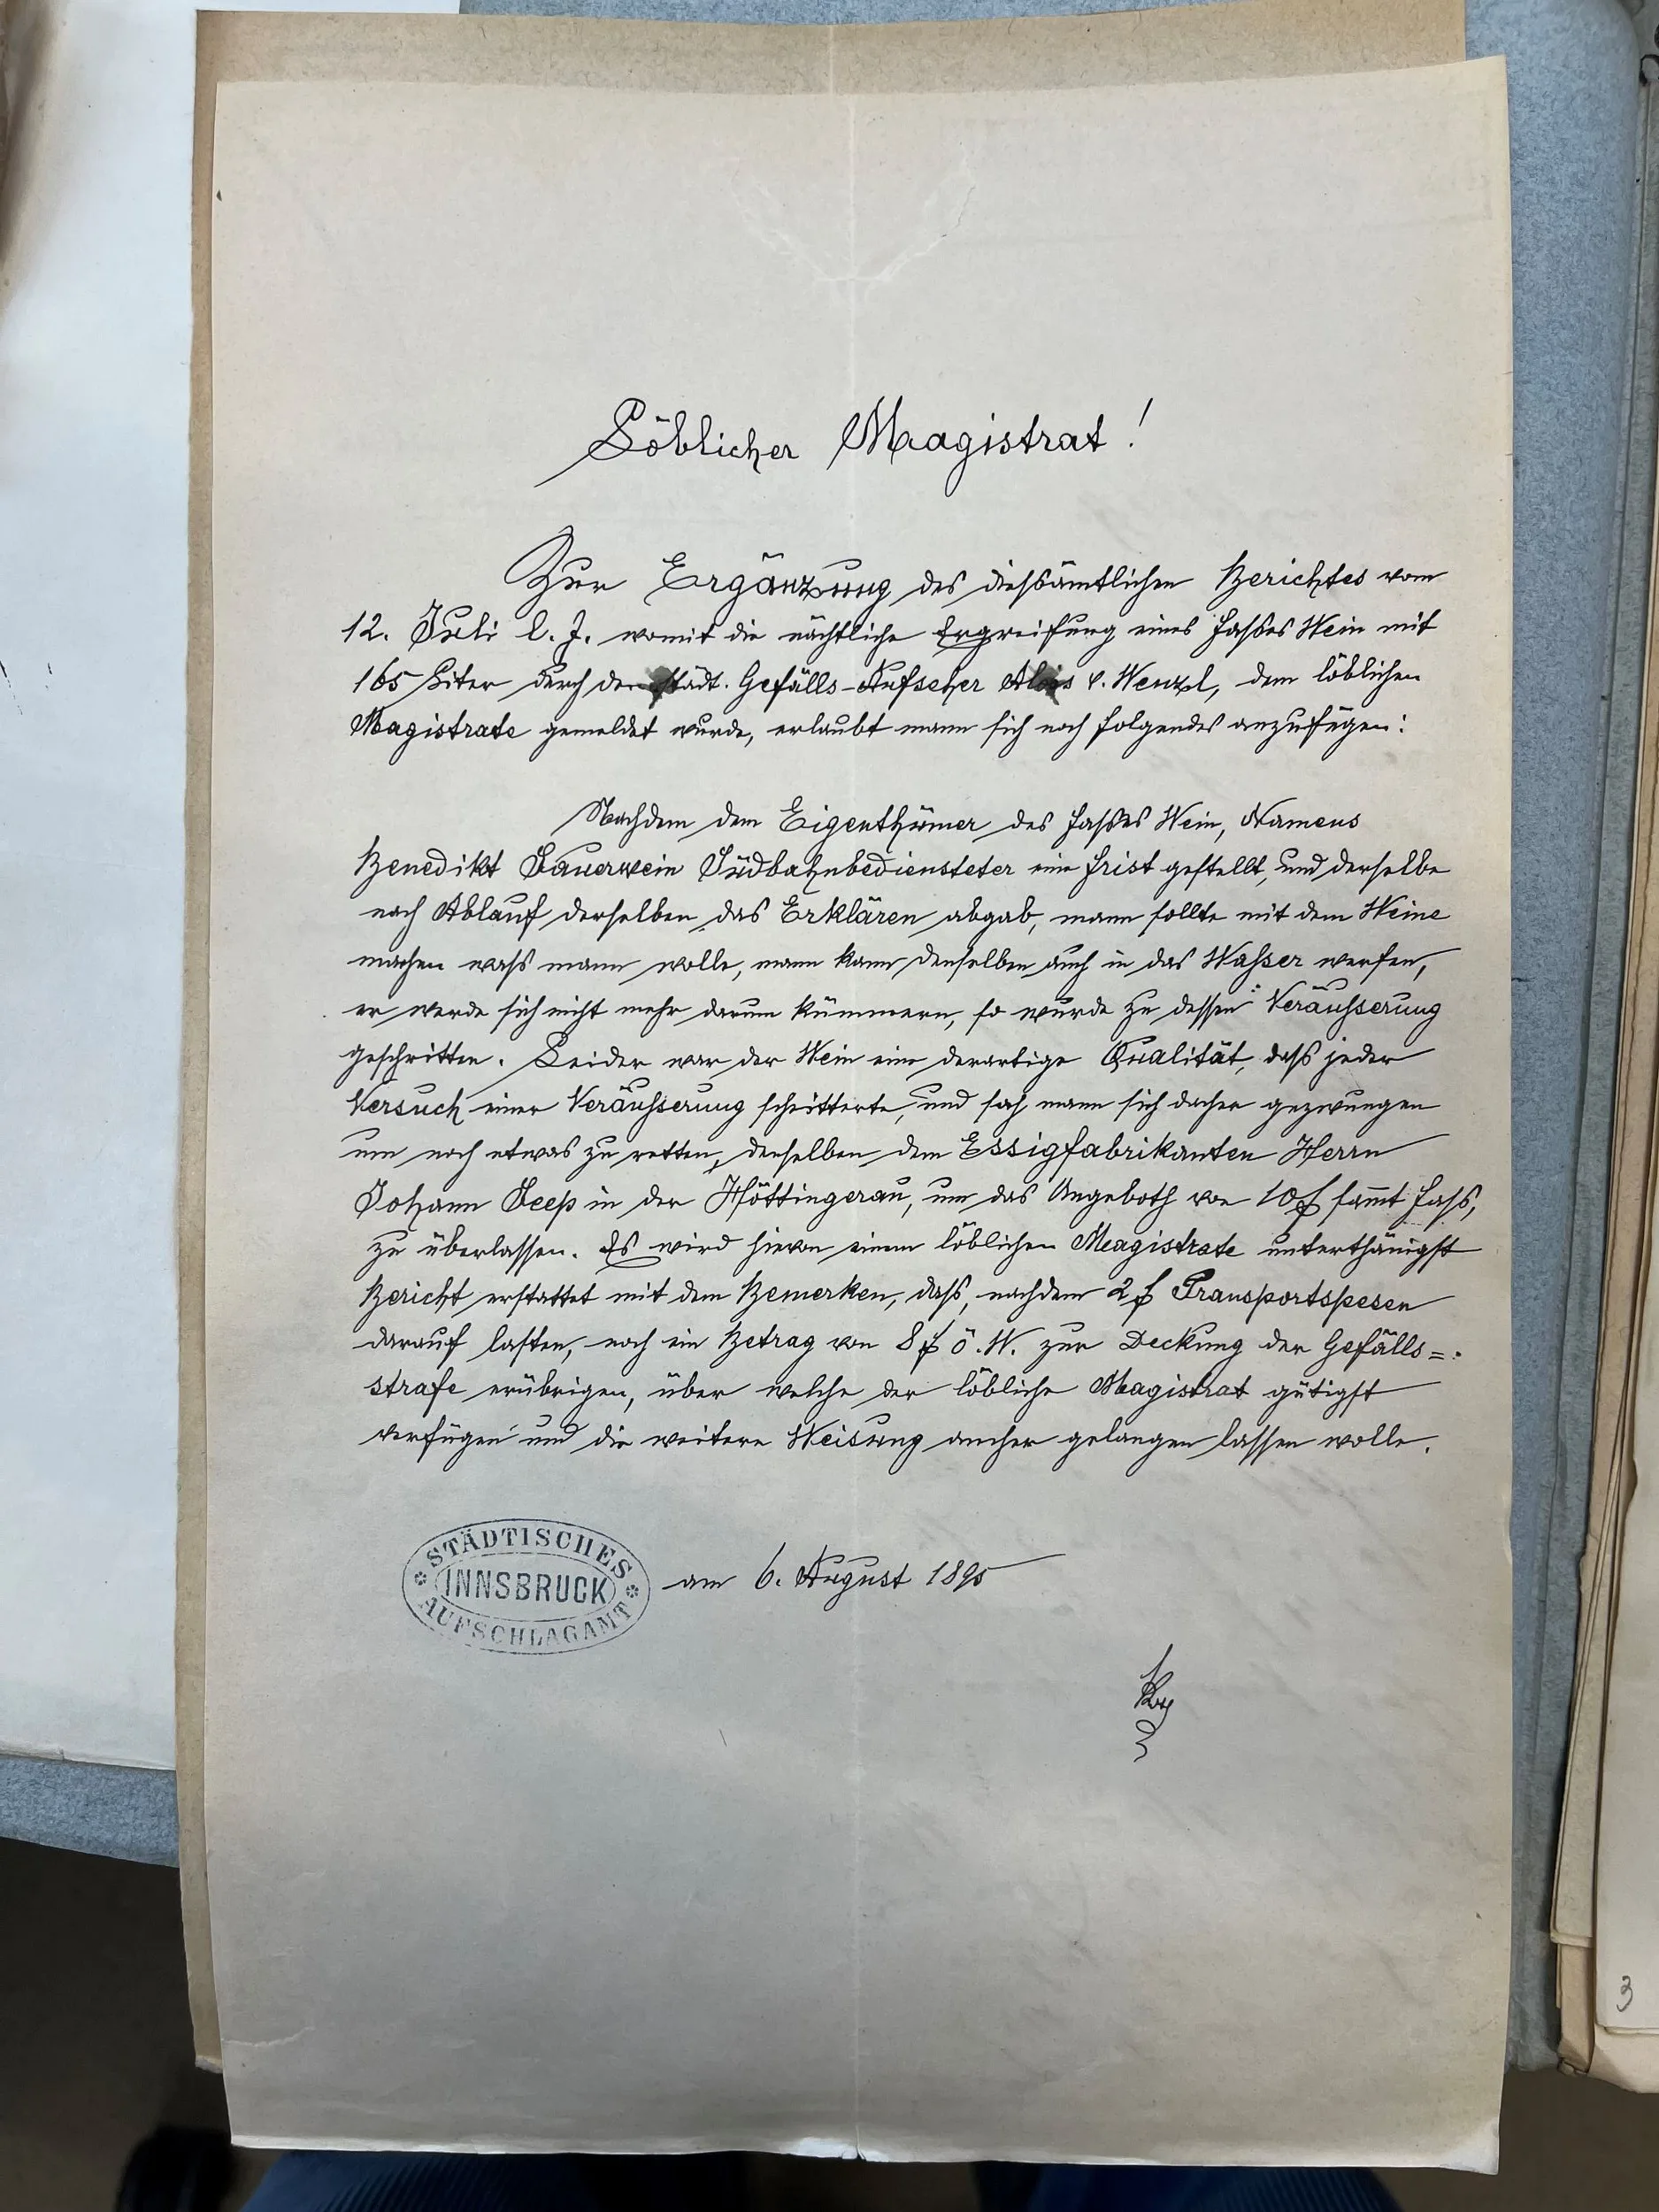 Löblicher Magistrat!
Zur Ergänzung des diehsämtlichen Berichtes vom
12. Juli l. J. womit die nächtliche Ergreifung eines Faßes Wein mit
165 Liter durch den städt. Gefälls-Aufseher Alois v. Wenzl, dem löblichen
Magistrate gemeldet wurde, erlaubt mann sich noch folgendes anzufügen:
Nachdem dem Eigenthümer des Faßes Wein, Namens
Benedikt Sauerwein Südbahnbediensteter eine Frist gestellt, und derselbe
nach Ablauf derselben das Erklären abgab, mann sollte mit dem Weine
machen waß mann wolle, mann kann denselben auch in das Waßer werfen,
er werde sich nicht mehr darum kümmern, so wurde zu dessen Veräußerung
geschritten. Leider war der Wein eine derartige Qualität, daß jeder
Versuch einer Veräußerung scheitterte, und sah mann sich daher gezwungen
um noch etwas zu retten, denselben dem Essigfabrikanten Herrn
Johann Seep in der Höttingerau, um das Angeboth von 10 f sammt Faß,
zu überlassen. Es wird hievon einem löblichen Magistrate unterthänigst
Bericht erstattet mit dem Bemerken, daß, nachdem 2 f Transportspesen
darauf lasten, noch ein Betrag von 8 f ö. W. zur Deckung der Gefälls=
strafe erübrigen, über welche der löbliche Magistrat gütigst
verfügen und die weitere Weisung anher gelangen lassen wolle.
STÄDTISCHES INNSBRUCK AUFSCHLAGAMT am 6. August 1895
3